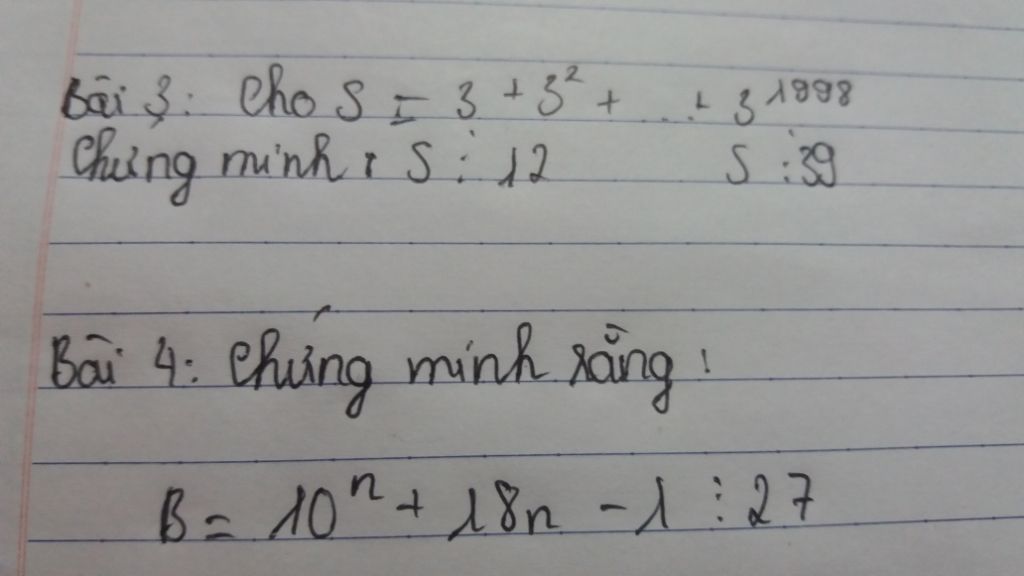 Bài 3: Cho S = 3 + 3² + ... + 3¹⁹⁹⁸
Chứng minh: S ⋮ 12 S ⋮ 39
Bài 4: Chứng minh rằng:
B = 10ⁿ + 18n - 1 ⋮ 27